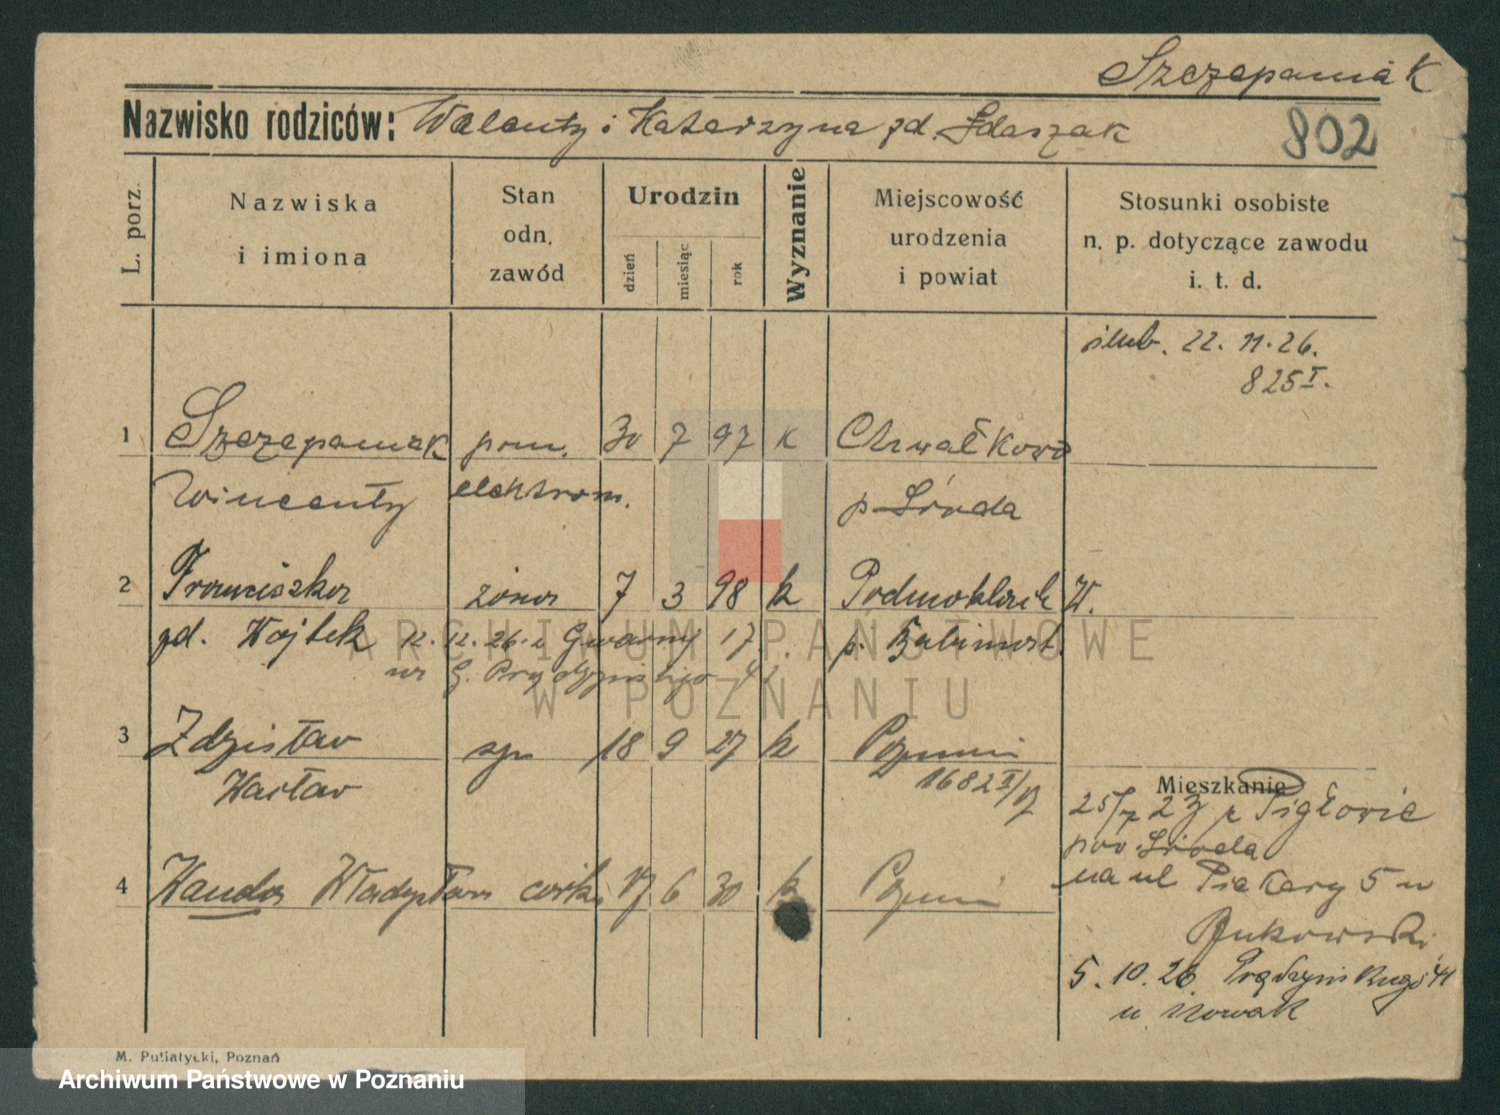 Szczepaniak
Nazwisko rodziców: Walenty i Katarzyna zd.
802
L. porz.
Nazwiska
i imiona
Stan
odn.
zawód
Urodzin
dzień
miesiąc
rok
Wyznanie
Miejscowość
urodzenia
i powiat
Stosunki osobiste
n. p. dotyczące zawodu
i. t. d.
ślub. 22. 11. 26.
825 I.
1 Szczepaniak pom. 30 7 97 k Chwałkowo
Wincenty elektrom. p. Środa
2 Franciszka żona 7 3 98 k Podmokle W.
zd. Wojtek 12. 12. 26. z Gwarny 17. p. Babimost
na G. Prądzyńskiego
ARCHIWUM PAŃSTWOWE
W POZNANIU
3 Zdzisław syn 18 9 27 k Poznań
Wacław 1682 II/27
Mieszkanie
25/7 23 z Pigłowic
pow. Środa
4 Wanda Władysława córka 17 6 30 k Poznań
na ul Piekary 5 u
Bukowski
5. 10. 26. Prądzyńskiego 41
u Nowak
M. Putiatycki, Poznań
Archiwum Państwowe w Poznaniu